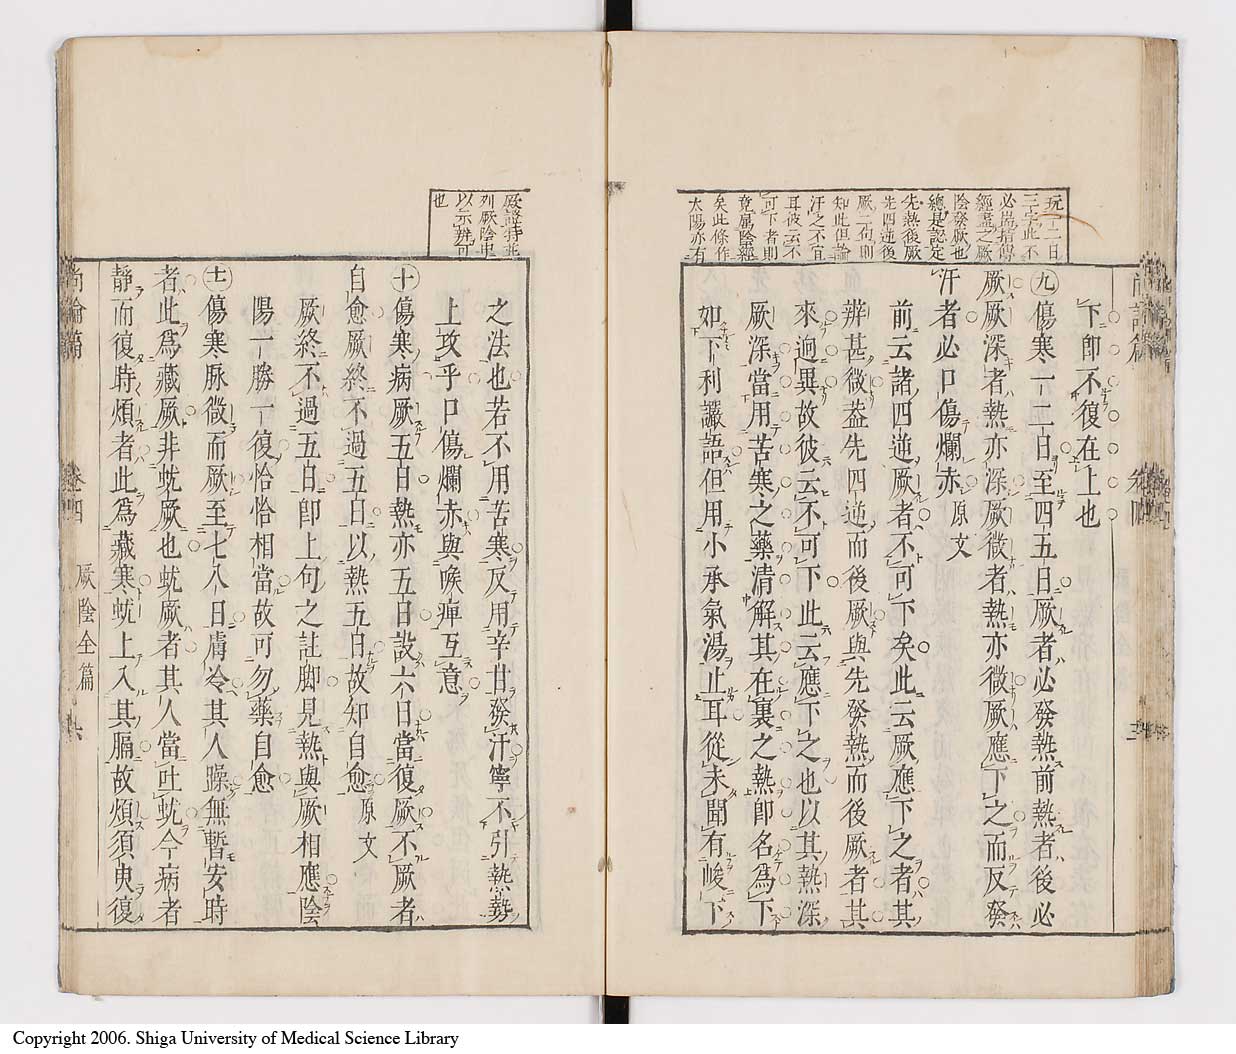 玩一二日
三字此不
必崗指傳
經盡之厥
陰發厥也
總是認定
先熱後厥
先四逆後
厥二句則
知此但論
汗之不宜
耳彼云不
可下者則
竟屬陰經
矣此條作
太陽亦有
下卽不復在上也
九傷寒一二日至四五日厥者必發熱前熱者後必
厥厥深者熱亦深厥微者熱亦微厥應下之而反發
汗者必口傷爛赤原文
前云諸四逆厥者不可下矣此云厥應下之者其
辨甚微葢先四逆而後厥與先發熱而後厥者其
來逈異故彼云不可下此云應下之也以其熱深
厥深當用苦寒之藥清解其在裏之熱卽名爲下
如下利讝語但用小承氣湯止耳從未聞有峻下
厥證特兆
列厥陰中
以示辨可
也
之法也若不用苦寒反用辛甘發汗寧不引熱勢
上攻乎口傷爛赤與喉痺互意
十傷寒病厥五日熱亦五日設六日當復厥不厥者
自愈厥終不過五日以熱五日故知自愈原文
厥終不過五日卽上句之註脚見熱與厥相應陰
陽一勝一復恰恰相當故可勿藥自愈
十一傷寒脉微而厥至七八日膚冷其人躁無暫安時
者此爲藏厥非蚘厥也蚘厥者其人當吐蚘今病者
靜而復時煩者此爲藏寒蚘上入其膈故煩須臾復
尚論篇 卷四 厥陰全篇